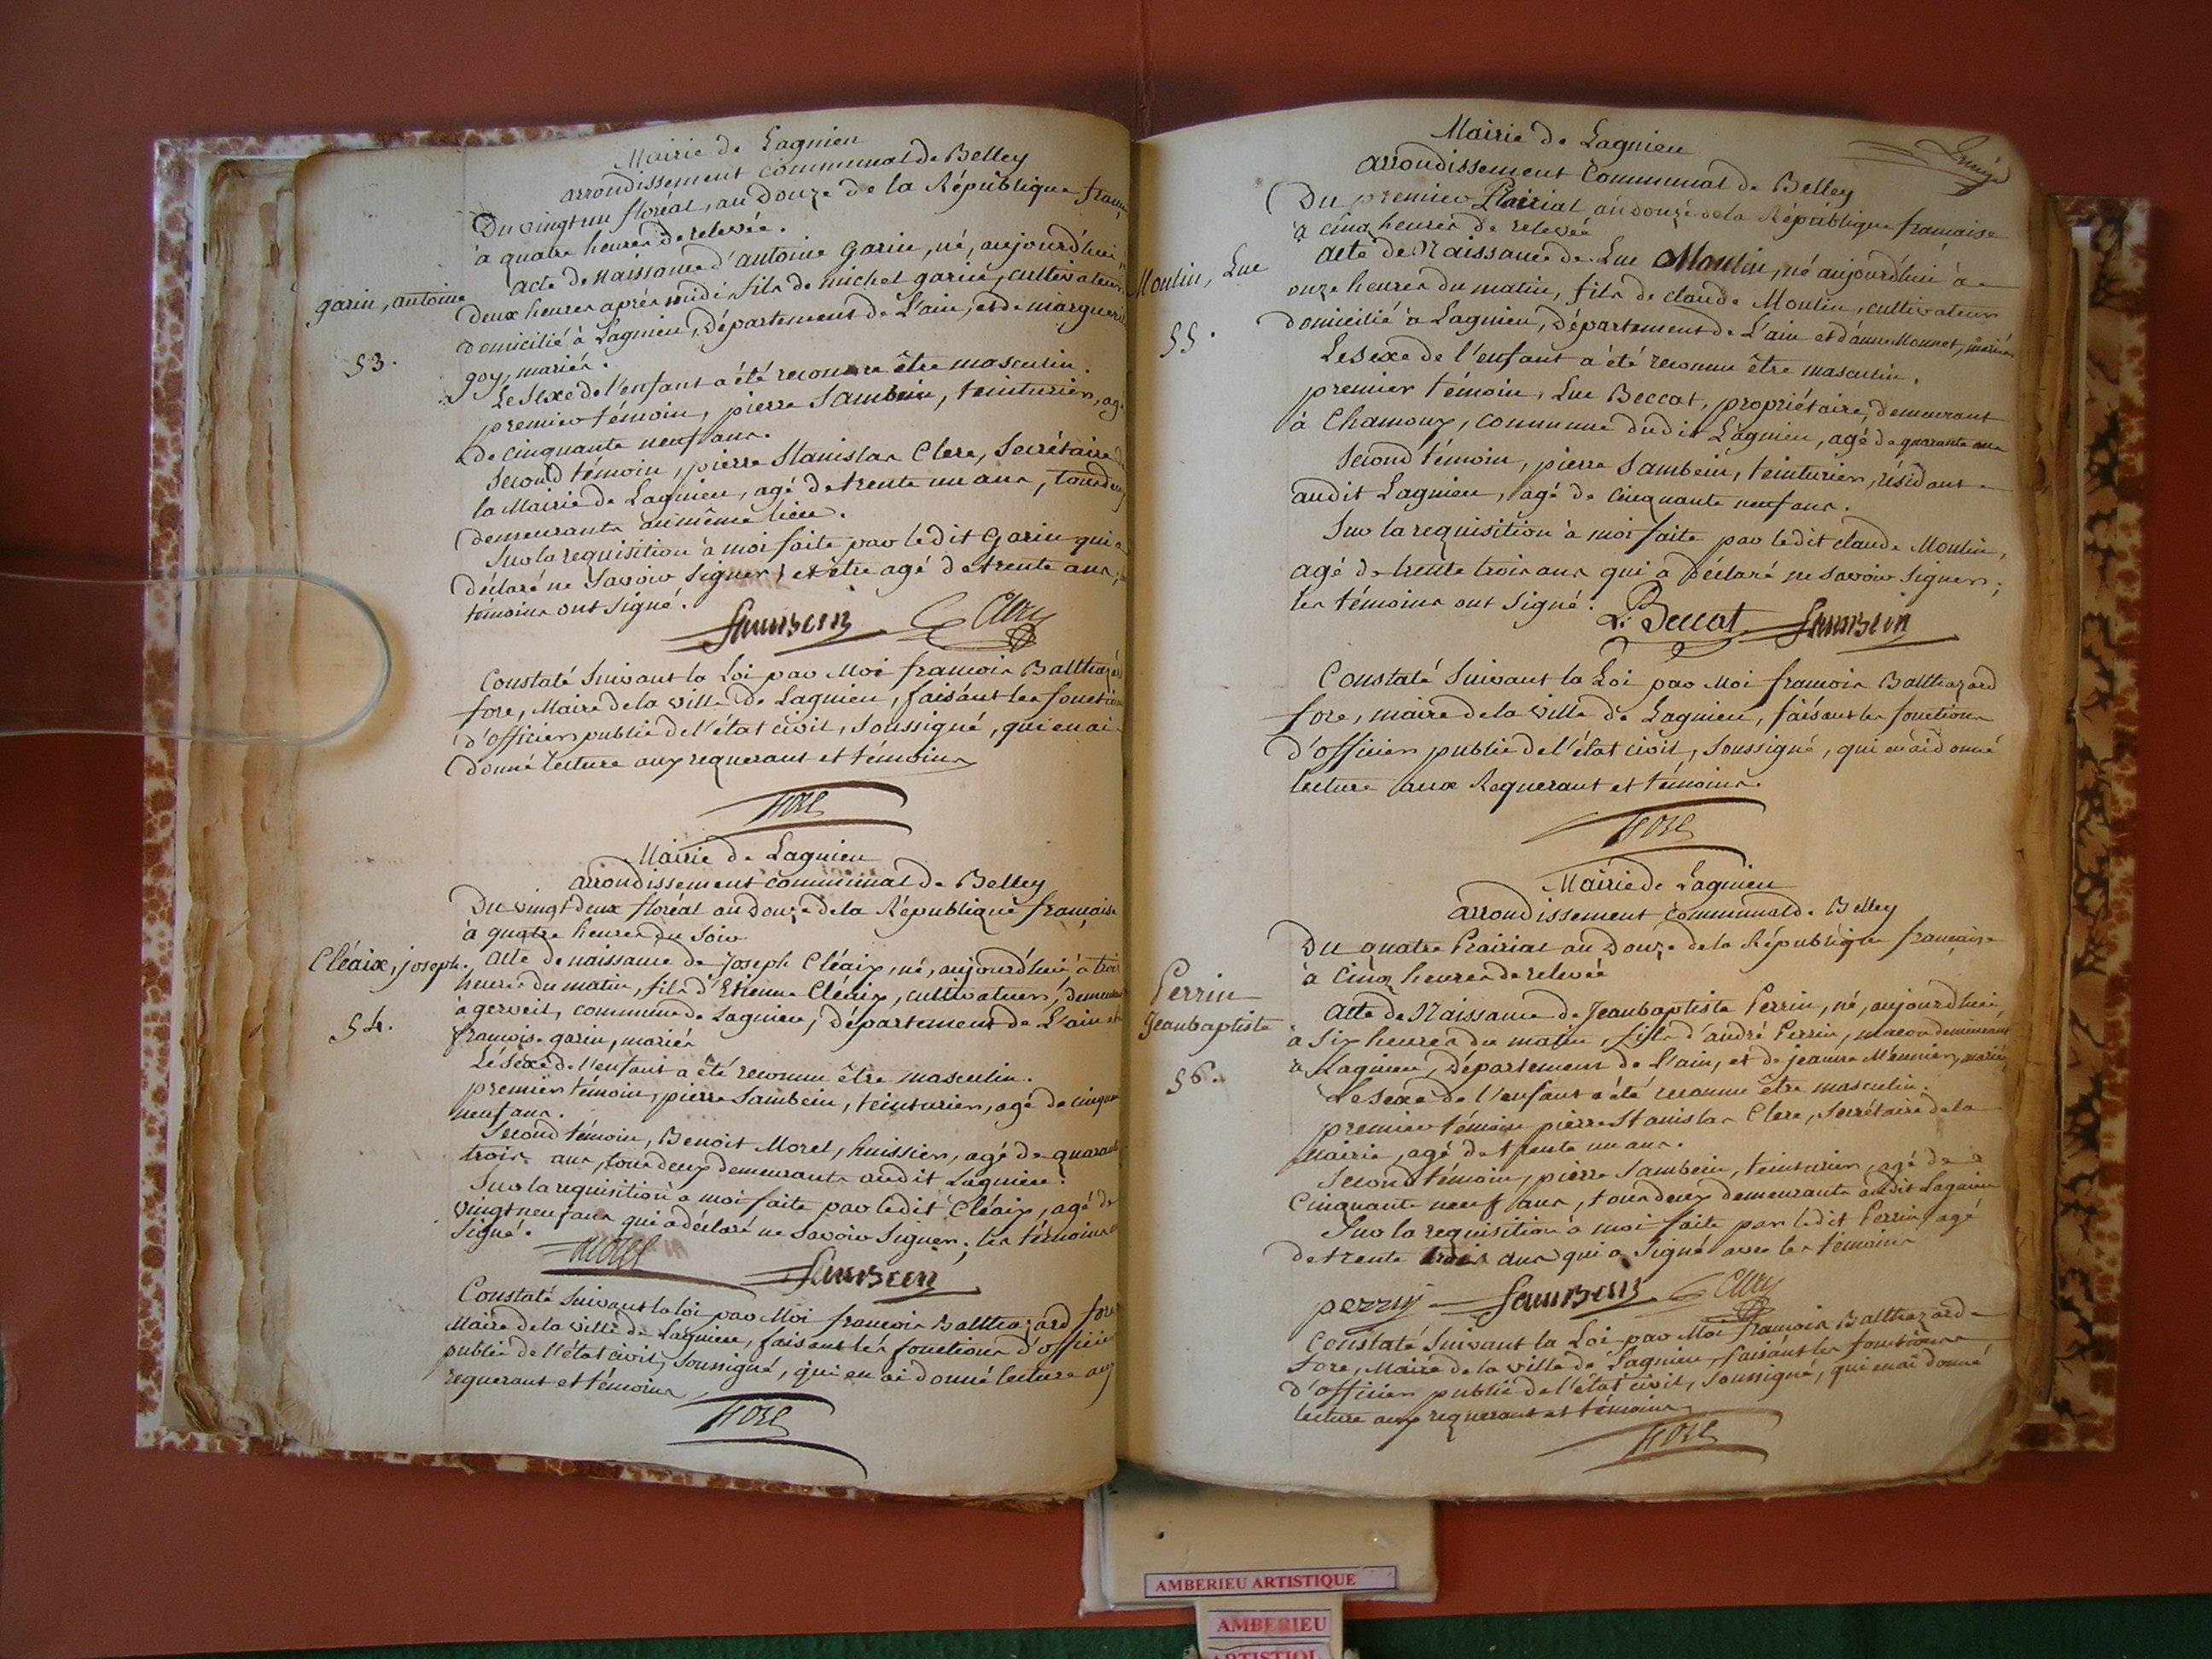 Mairie de Lagnieu
arrondissement communal de Belley
Du vingt un floréal, an douze de la République
à quatre heures de relevée.
garin, antoine
53.
acte de Naissance d'antoine Garin, né, aujourd'hui,
deux heures après midi, fils de michel garin, cultivateur
domicilié à Lagnieu, Département de L'ain, et de
goy, mariés.
Le Sexe de l'enfant a été reconnu être masculin.
premier témoin, pierre Sambein, teinturier,
de cinquante neuf ans.
Second témoin, pierre Stanislas Clerc, Secrétaire
la Mairie de Lagnieu, agé de trente un ans,
demeurants au même lieu.
Sur la requisition à moi faite par le dit Garin qui a
Déclaré ne Savoir Signer, et être agé de trente ans,
témoins ont Signé.
Sambein Clerc
Constaté Suivant la Loi par Moi françois
fore, Maire de la ville de Lagnieu, faisant les
d'officier public de l'état civil, Soussigné, qui en ai
donné lecture aux requerant et témoins
fore
Mairie de Lagnieu
arrondissement communal de Belley
Du vingt deux floréal an Douze de la République française
à quatre heures du Soir
Cléaix, joseph.
54.
acte de naissance de Joseph Cléaix, né, aujourd'hui, à trois
heures du matin, fils d'Etienne Cléaix, cultivateur,
à gerveil, commune de Lagnieu, Département de L'ain
françoise garin, mariés
Le Sexe de l'enfant a été reconnu être masculin.
premier témoin, pierre Sambein, teinturier, agé de
neuf ans.
Second témoin, Benoit Morel, huissier, agé de
trois ans, tous deux demeurants audit Lagnieu.
Sur la requisition à moi faite par le dit Cléaix, agé de
vingt neuf ans qui a déclaré ne Savoir Signer; les témoins
Signé.
Morel Sambein
Constaté Suivant la loi par Moi françois Balthazard fore
Maire de la ville de Lagnieu, faisant les fonctions d'officier
public de l'état civil, Soussigné, qui en ai donné lecture aux
requerant et témoins
fore
Mairie de Lagnieu
arrondissement Communal de Belley
Du premier Prairial an douze de la République française
à cinq heures de relevée
Moulin, Luc
55.
acte de Naissance de Luc Moulin, né aujourd'hui à
onze heures du matin, fils de claude Moulin, cultivateur
domicilié à Lagnieu, Département de L'ain et d'anne Monnet, mariés
Le Sexe de l'enfant a été reconnu être masculin.
premier témoin, Luc Beccat, propriétaire, demeurant
à Chamoux, commune dudit Lagnieu, agé de quarante ans
Second témoin, pierre Sambein, teinturier, résidant
audit Lagnieu, agé de cinquante neuf ans.
Sur la requisition à moi faite par le dit claude Moulin,
agé de trente trois ans qui a déclaré ne savoir Signer;
les témoins ont Signé.
L. Beccat Sambein
Constaté Suivant la Loi par Moi françois Balthazard
fore, maire de la ville de Lagnieu, faisant les fonctions
d'officier public de l'état civil, Soussigné, qui en ai donné
lecture aux Requerant et témoins.
fore
Mairie de Lagnieu
arrondissement communal de Belley
Du quatre Prairial an Douze de la République française
à cinq heures de relevée
Perrin
Jeanbaptiste
56.
acte de Naissance de Jeanbaptiste Perrin, né, aujourd'hui,
à Six heures du matin, fils d'andré Perrin, maçon demeurant
à Lagnieu, Département de L'ain, et de jeanne Meunier, mariés
Le Sexe de l'enfant a été reconnu être masculin.
premier témoin pierre Stanislas Clerc, Secrétaire de la
Mairie, agé de trente un ans.
Second témoin, pierre Sambein, teinturier, agé de
Cinquante neuf ans, tous deux demeurants audit Lagnieu
Sur la requisition à moi faite par ledit Perrin, agé
de trente trois ans qui a Signé avec les témoins
perrin Sambein Clerc
Constaté Suivant la Loi par Moi françois Balthazard
fore, Maire de la ville de Lagnieu, faisant les fonctions
d'officier public de l'état civil, Soussigné, qui en ai donné
lecture aux requerant et témoins
fore
AMBERIEU ARTISTIQUE
AMBERIEU